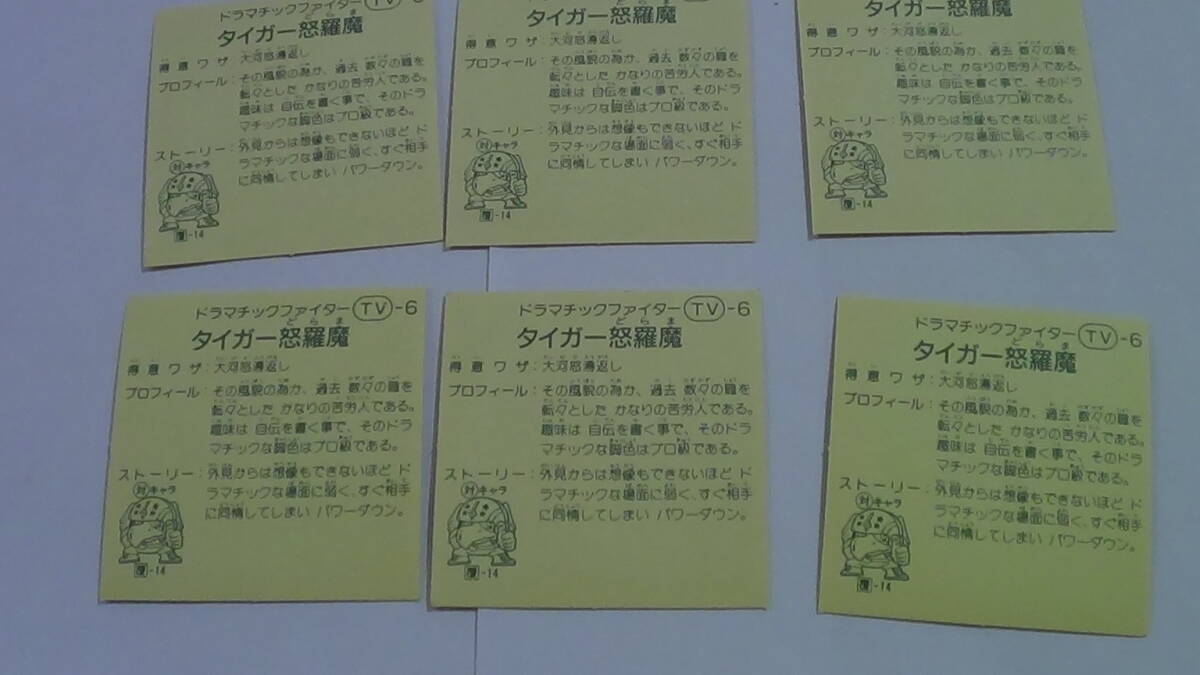 ドラマチックファイター TV-6
タイガー怒羅魔
得意ワザ：大河怒濤返し
プロフィール：その風貌の為か、過去 数々の職を
転々とした かなりの苦労人である。
趣味は 自伝を書く事で、そのドラ
マチックな脚色はプロ級である。
ストーリー：外見からは想像もできないほど ド
ラマチックな場面に弱く、すぐ相手
に同情してしまい パワーダウン。
対キャラ
-14
タイガー怒羅魔
得意ワザ：大河怒濤返し
プロフィール：その風貌の為か、過去 数々の職を
転々とした かなりの苦労人である。
趣味は 自伝を書く事で、そのドラ
マチックな脚色はプロ級である。
ストーリー：外見からは想像もできないほど ド
ラマチックな場面に弱く、すぐ相手
に同情してしまい パワーダウン。
対キャラ
-14
タイガー怒羅魔
得意ワザ：大河怒濤返し
プロフィール：その風貌の為か、過去 数々の職を
転々とした かなりの苦労人である。
趣味は 自伝を書く事で、そのドラ
マチックな脚色はプロ級である。
ストーリー：外見からは想像もできないほど ド
ラマチックな場面に弱く、すぐ相手
に同情してしまい パワーダウン。
対キャラ
-14
ドラマチックファイター TV-6
どらま
タイガー怒羅魔
得意ワザ：大河怒濤返し
プロフィール：その風貌の為か、過去 数々の職を
転々とした かなりの苦労人である。
趣味は 自伝を書く事で、そのドラ
マチックな脚色はプロ級である。
ストーリー：外見からは想像もできないほど ド
ラマチックな場面に弱く、すぐ相手
に同情してしまい パワーダウン。
対キャラ
-14
ドラマチックファイター TV-6
どらま
タイガー怒羅魔
得意ワザ：大河怒濤返し
プロフィール：その風貌の為か、過去 数々の職を
転々とした かなりの苦労人である。
趣味は 自伝を書く事で、そのドラ
マチックな脚色はプロ級である。
ストーリー：外見からは想像もできないほど ド
ラマチックな場面に弱く、すぐ相手
に同情してしまい パワーダウン。
対キャラ
-14
ドラマチックファイター TV-6
どらま
タイガー怒羅魔
得意ワザ：大河怒濤返し
プロフィール：その風貌の為か、過去 数々の職を
転々とした かなりの苦労人である。
趣味は 自伝を書く事で、そのドラ
マチックな脚色はプロ級である。
ストーリー：外見からは想像もできないほど ド
ラマチックな場面に弱く、すぐ相手
に同情してしまい パワーダウン。
対キャラ
-14